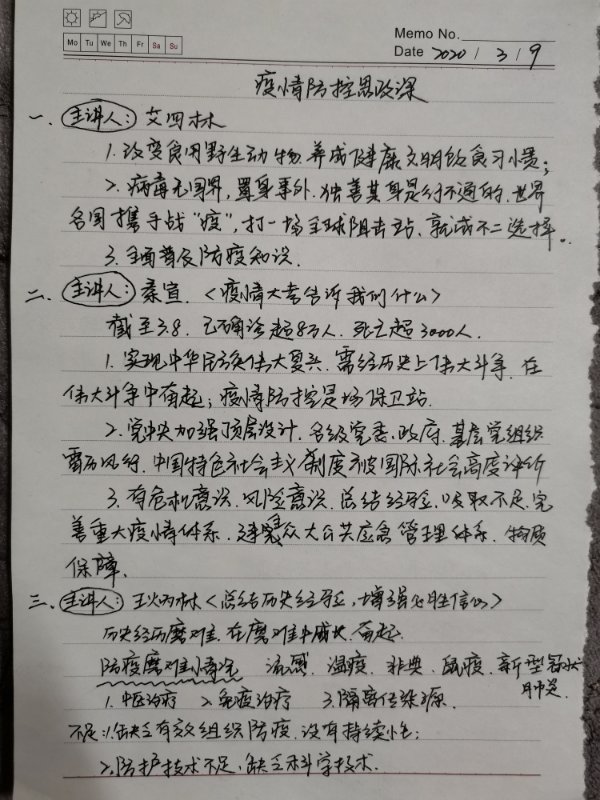 Memo No.
Mo Tu We Th Fr Sa Su
Date 2020 / 3 / 9
疫情防控思政课
一、主讲人：艾四林
1.改变食用野生动物,养成健康文明饮食习惯；
2.病毒无国界,置身事外、独善其身是行不通的,世界
各国携手战“疫”,打一场全球阻击站、就成不二选择。
3.全面普及防疫知识.
二、主讲人：秦宣.<疫情大考告诉我们什么>
截至3.8.已确诊超8万人.死亡超3000人.
1.实现中华民族伟大复兴.需经历史上伟大斗争.在
伟大斗争中奋起；疫情防控是场保卫站.
2.党中央加强顶层设计.各级党委.政府.基层党组织
雷厉风行.中国特色社会主义制度被国际社会高度评价
3.有危机意识.风险意识.总结经验.吸取不足.完
善重大疫情体系.建 公共应急管理体系.物质
保障.
三、主讲人：王炳林<总结历史经验,增强必胜信心>
历史经历磨难.在磨难中成长.奋起.
防疫磨难情况 流感.温疫.非典.鼠疫.新型冠状
肺炎.
1.中医治疗 2.免疫治疗 3.隔离传染源.
不足:1.缺乏有效组织防疫.没有持续性；
2.防护技术不足,缺乏科学技术.